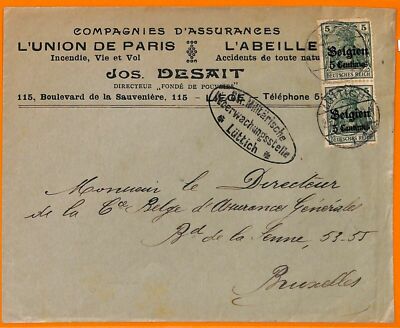 COMPAGNIES D'ASSURANCES
L'UNION DE PARIS L'ABEILLE
Incendie, Vie et Vol Accidents de toute natu
JOS. DESAIT
DIRECTEUR "FONDÉ DE POUVOIRS"
115, Boulevard de la Sauvenière, 115 - LIÉGE - Téléphone 5
5 5
Belgien
5 Centimes
DEUTSCHES REICH
LÜTTICH
5 5
Belgien
5 Centimes
DEUTSCHES REICH
Militärische
Ueberwachungsstelle
Lüttich
Monsieur le Directeur
de la Cie Belge d'Assurances Générales
Bd de la Senne, 53-55
Bruxelles